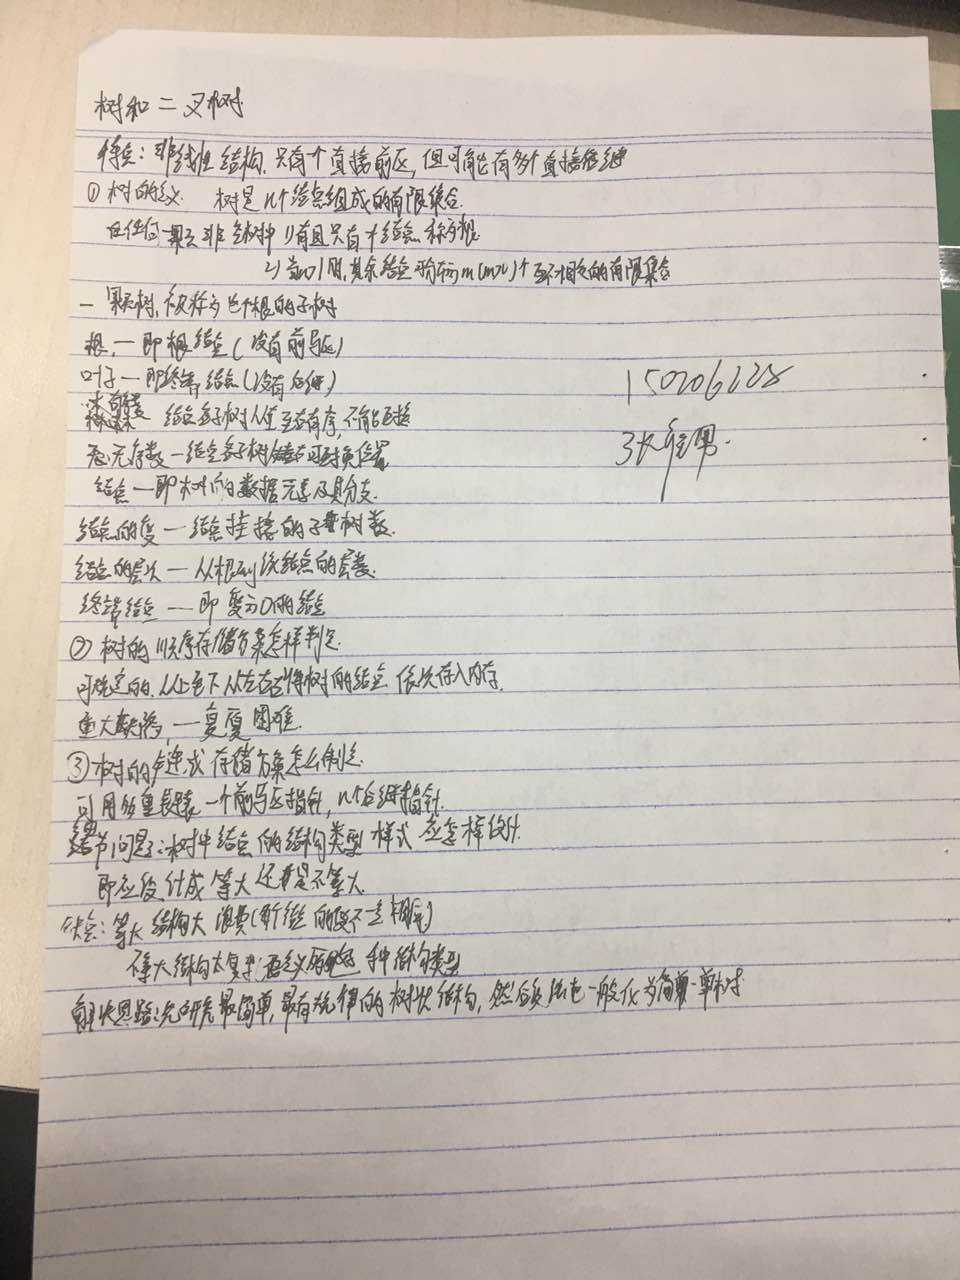 树和二叉树
特点：非线性结构，只有一个直接前驱，但可能有多个直接后继
① 树的定义 树是n个结点组成的有限集合
在任何一棵非空树中 1) 有且只有一个结点称为根
2) 当n>1时，其余结点可分为m(m>0)个互不相交的有限集合
一棵树，被称为这个根的子树
根 — 即根结点（没有前驱）
叶子 — 即终端结点（没有后继）
结点各子树从左至右有序，不能互换
无序数 — 结点各子树可互换位置
结点 — 即树的数据元素及其分支
结点的度 — 结点挂接的子树数
结点的层次 — 从根到该结点的层数
终端结点 — 即度为0的结点
② 树的顺序存储方案怎样制定
可规定的，从上至下从左至右将树的结点依次存入内存
重大缺陷，— 复原困难
③ 树的链式存储方案怎么制定
可用多重链表 一个前驱指针，n个后继指针
细节问题：树中结点的结构类型样式应怎样设计
即应设计成等大还是不等大
缺点：等大结构太浪费（每个结点的度不一定相同）
不等大结构太复杂 种结构类型
解决思路：先研究最简单，最有规律的树状结构，然后设法把一般化为简单
150206228